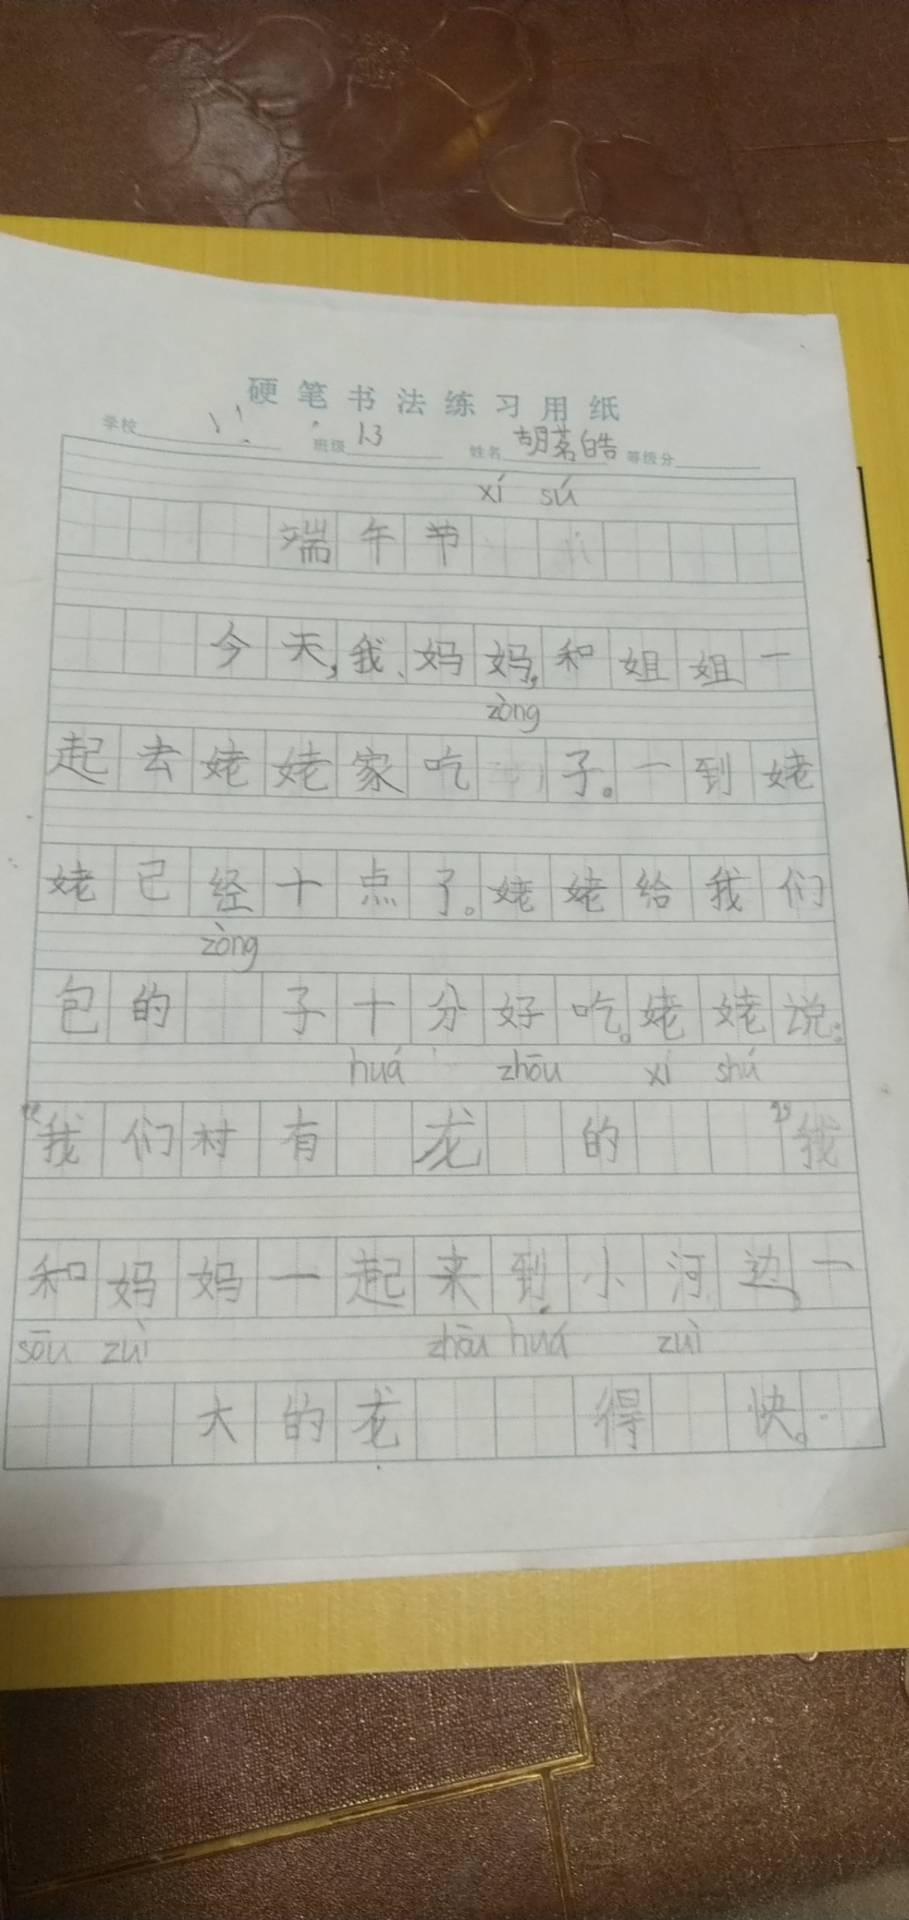 硬笔书法练习用纸
学校 班级 13 姓名 胡茗皓 等级分
xí sú
端午节
今天,我、妈妈,和姐姐一
zòng
起去姥姥家吃 子。一到姥
姥已经十点了。姥姥给我们
zòng
包的 子十分好吃。姥姥说:
huá zhōu xí shú
“我们村有 龙 的 ”我
和妈妈一起来到小河边,一
sōu zuì zhōu huá zuì
大的龙 得 快。